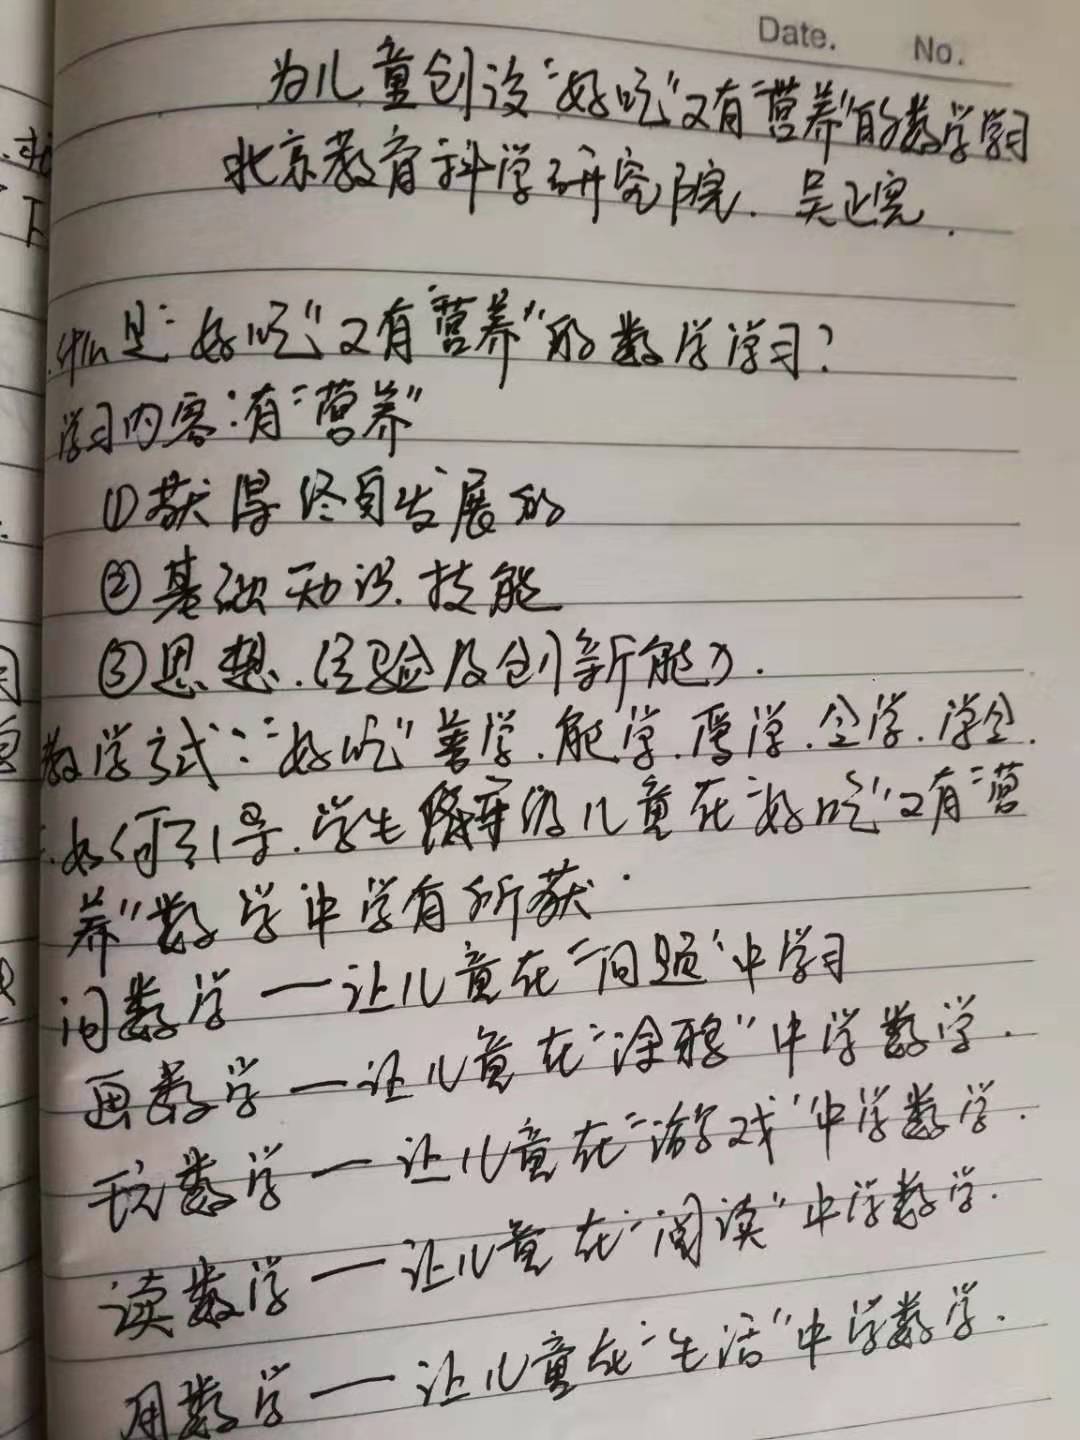 Date. No.
为儿童创设"好吃"又有"营养"的数学学习
北京教育科学研究院. 吴正宪.
什么是"好吃"又有"营养"的数学学习?
学习内容:有"营养"
①获得终身发展的
②基础知识.技能
③思想.经验及创新能力.
教学方式:"好吃"善学.能学.乐学.会学.学会.
如何引导.学生 儿童在"好吃"又有"营
养"数学中学有所获.
问数学—让儿童在"问题"中学习
画数学—让儿童在"涂鸦"中学数学.
玩数学—让儿童在"游戏"中学数学.
读数学—让儿童在"阅读"中学数学.
用数学—让儿童在"生活"中学数学.